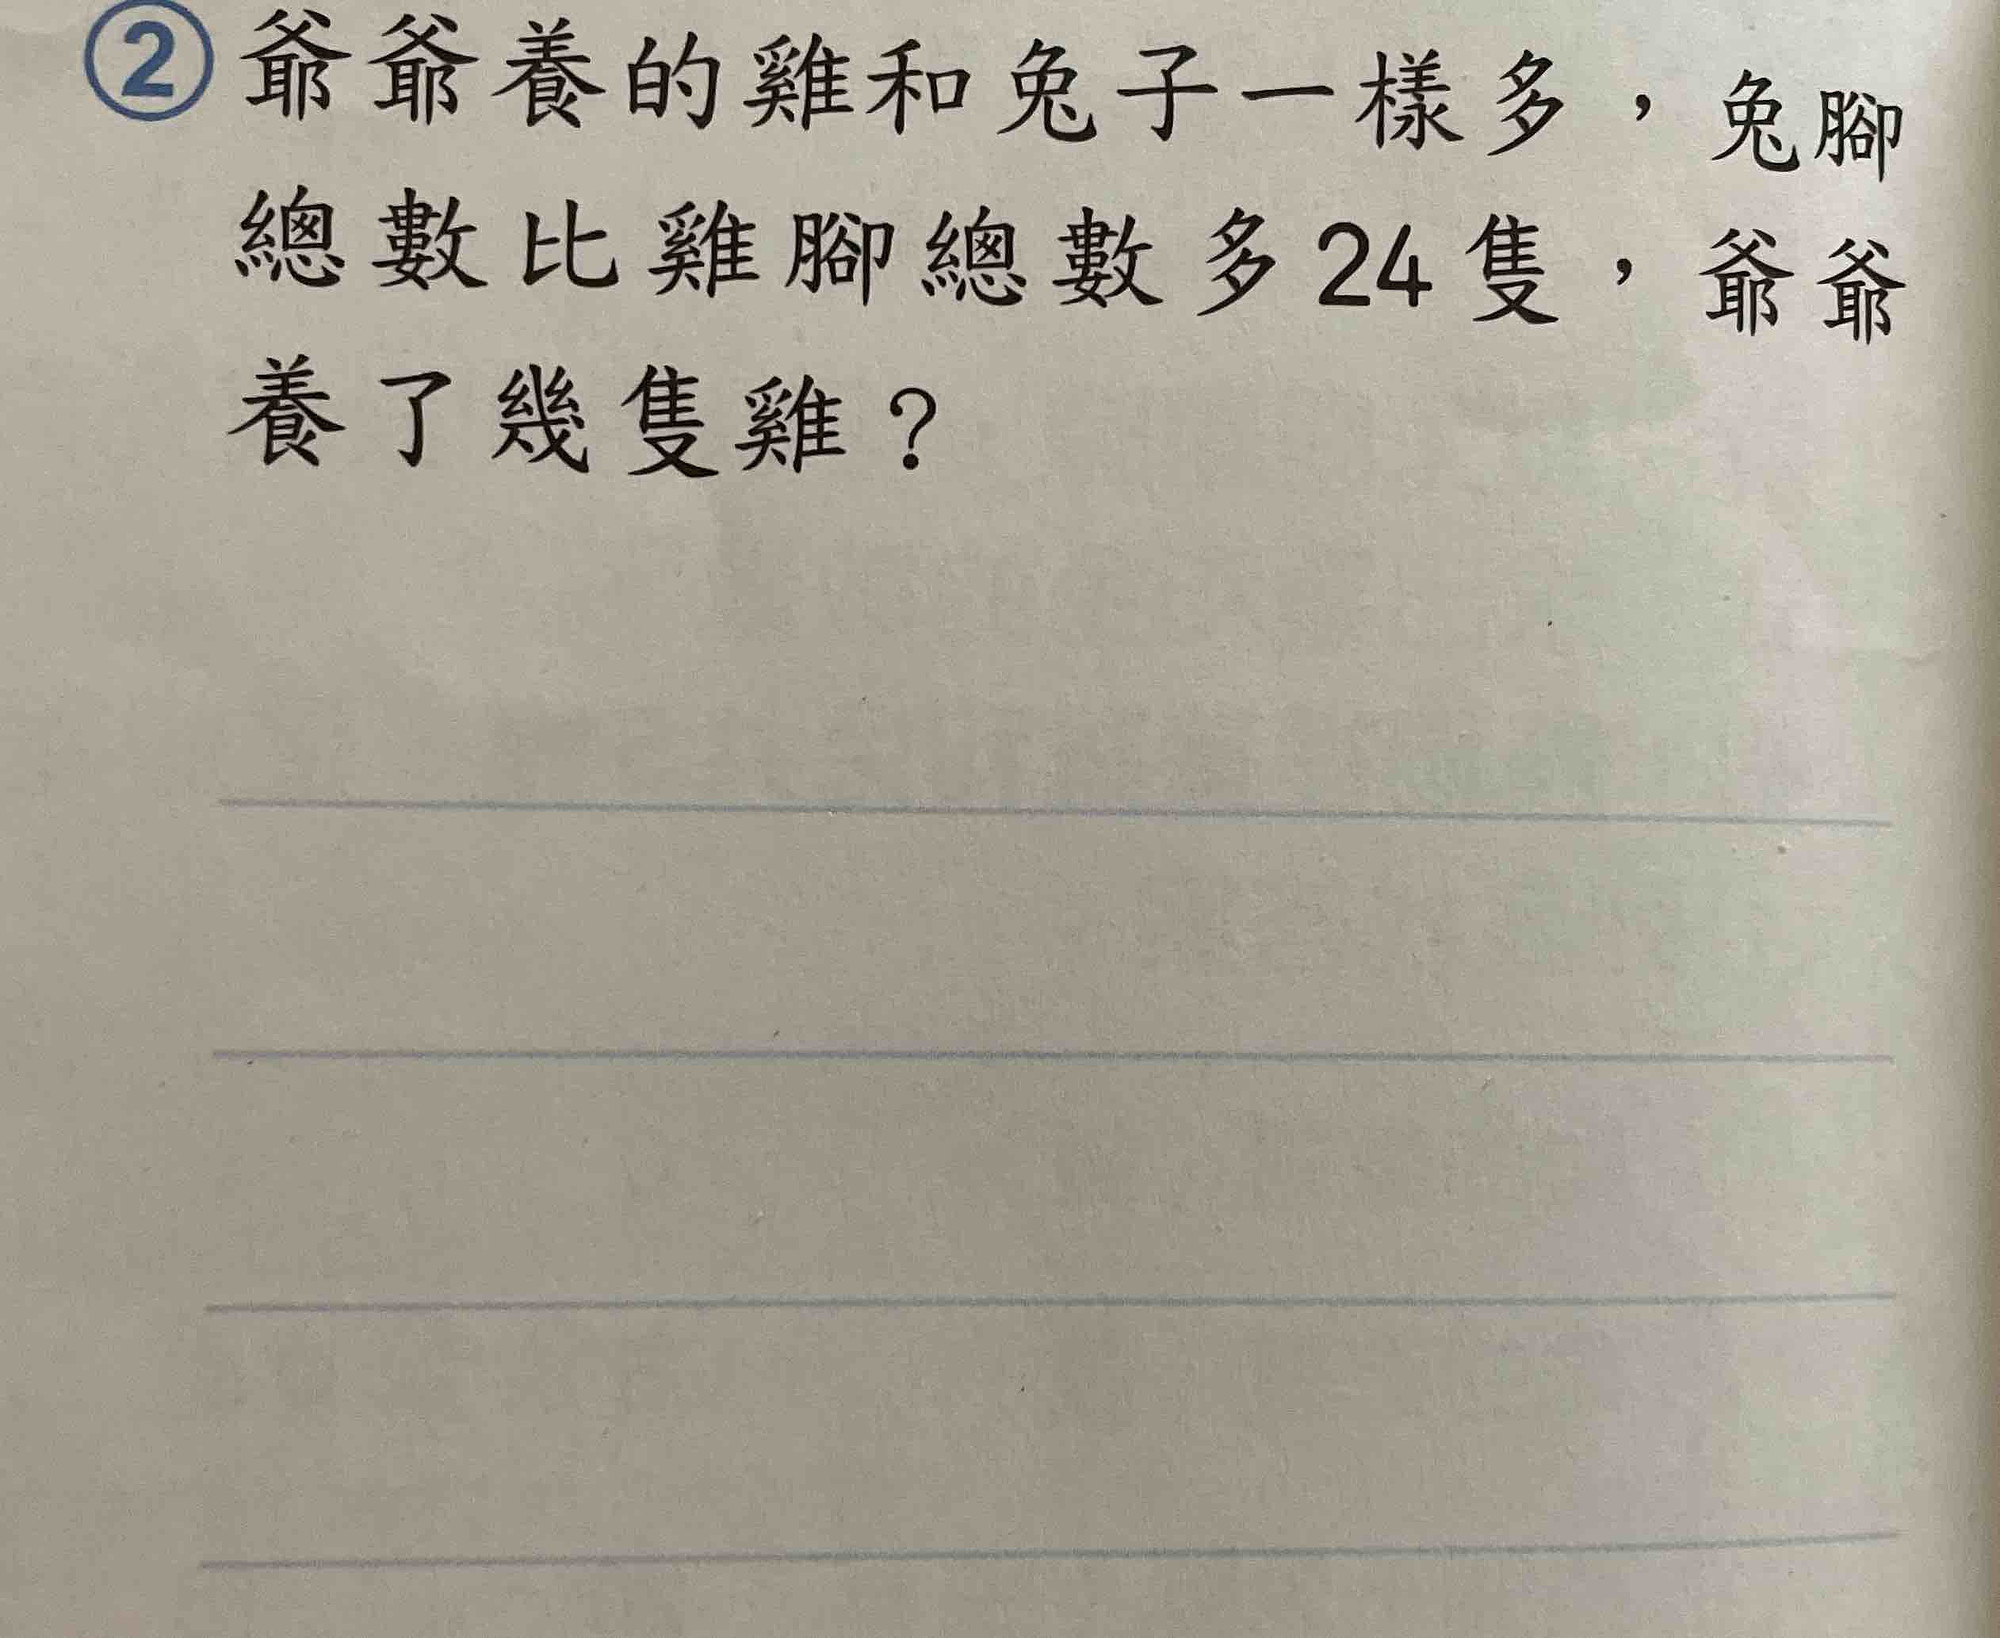 ②爺爺養的雞和兔子一樣多，兔腳
總數比雞腳總數多24隻，爺爺
養了幾隻雞？